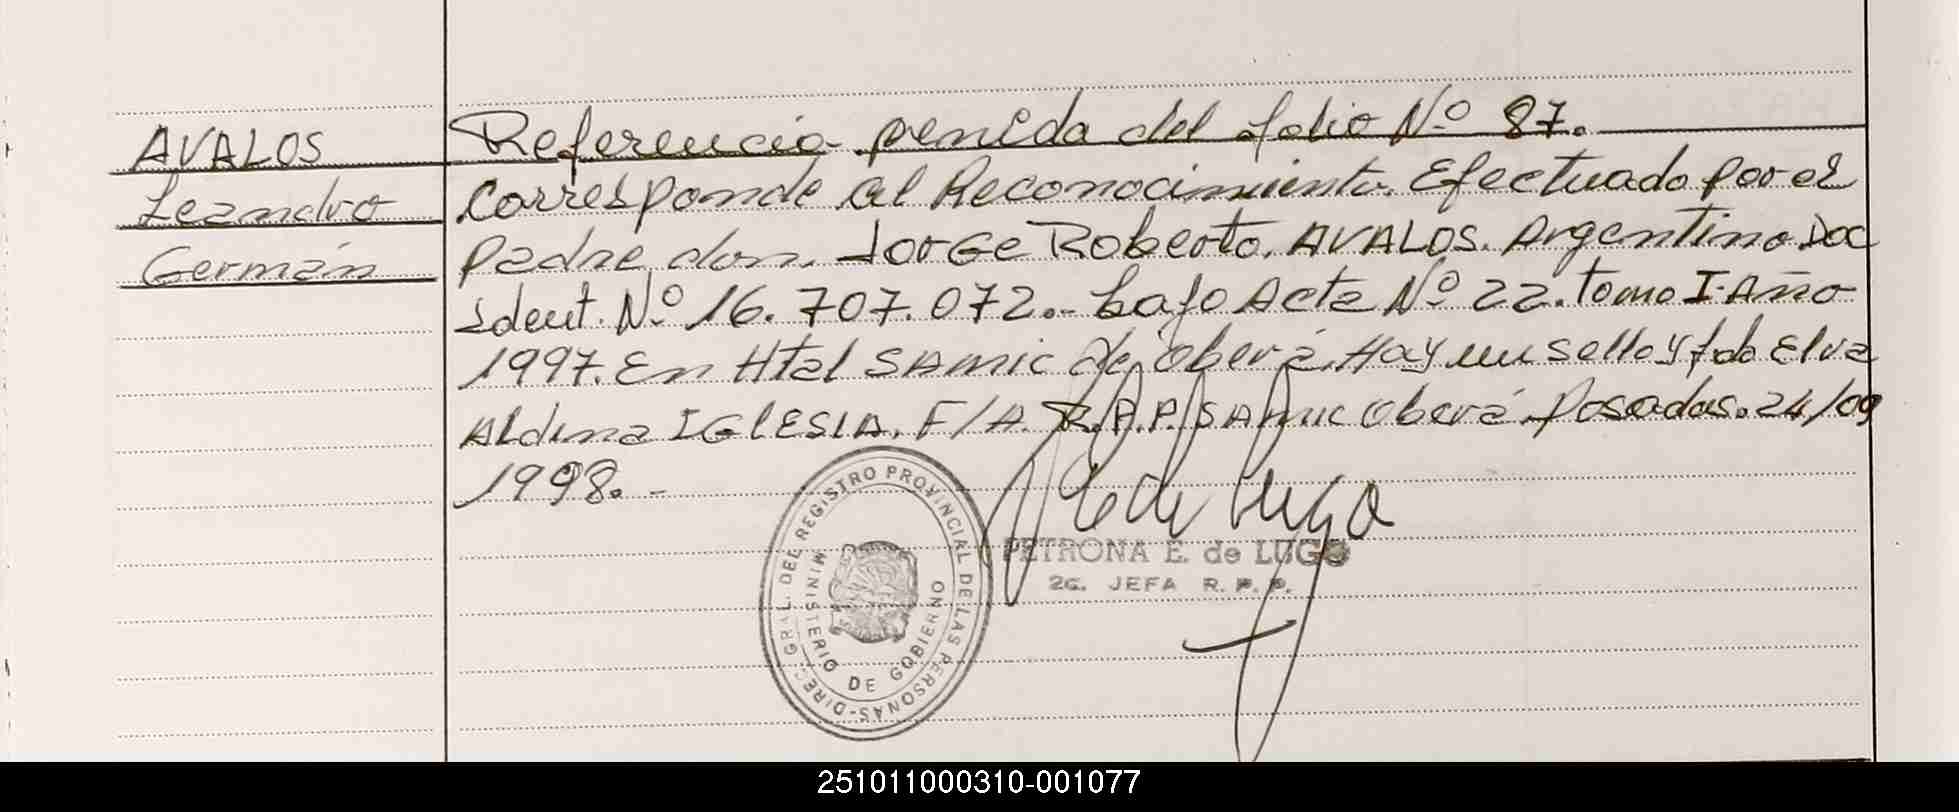 AVALOS
Leandro
Germán
Referencia penida del folio Nº 87.
Corresponde al Reconocimiento. Efectuado por el
padre, don. Jorge Roberto. AVALOS. Argentino. Doc
Ident. Nº 16.707.072.- bajo Acta Nº 22. tomo I. Año
1997. En Htal SAmic de Oberá. Hay un sello y fdo Elva
Aldina IGLESIA. F/A. R.P.P. SAmic Oberá. Posadas. 24/09
1998.-
DIREC. GRAL. DEL REGISTRO PROVINCIAL DE LAS PERSONAS-
MINISTERIO DE GOBIERNO
E de Lugo
PETRONA E. de LUGO
2a. JEFA R. P. P.
251011000310-001077